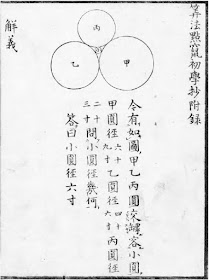 算法點竄初學抄附録
丙
乙
甲
今有如圖甲乙丙圓罅容小圓
甲圓徑六十九寸乙圓徑四十六寸丙圓徑
二十三寸問小圓徑幾何
答曰小圓徑六寸
解義